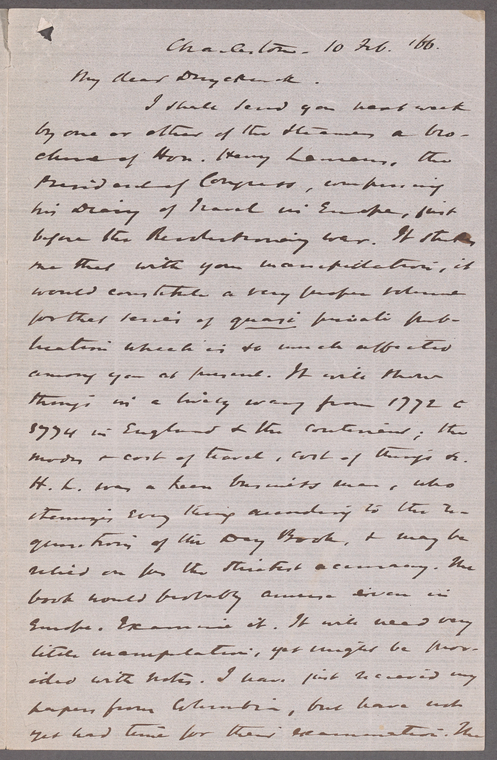 Charleston - 10 Feb. '66.
My dear Duyckinck.
I shall send you next week
by one or other of the Steamers a bro-
chure of Hon. Henry Laurens, the
President of Congress, comprising
his Diary of Travel in Europe, just
before the Revolutionary war. It strikes
me that with your manipulation, it
would constitute a very proper volume
for that series of quasi private pub-
lication which is so much affected
among you at present. It will show
things in a lively way from 1772 to
1774 in England & the continent; the
modes & cost of travel, cost of things &c.
H. L. was a keen business man, who
every thing according to the re-
quisitions of the Day Book, & may be
relied on for the strictest accuracy. The
book would probably amuse even in
Europe. Examine it. It will need very
little manipulation, yet might be prov-
ided with notes. I have just received my
papers from Columbia, but have not
yet had time for their examination. The